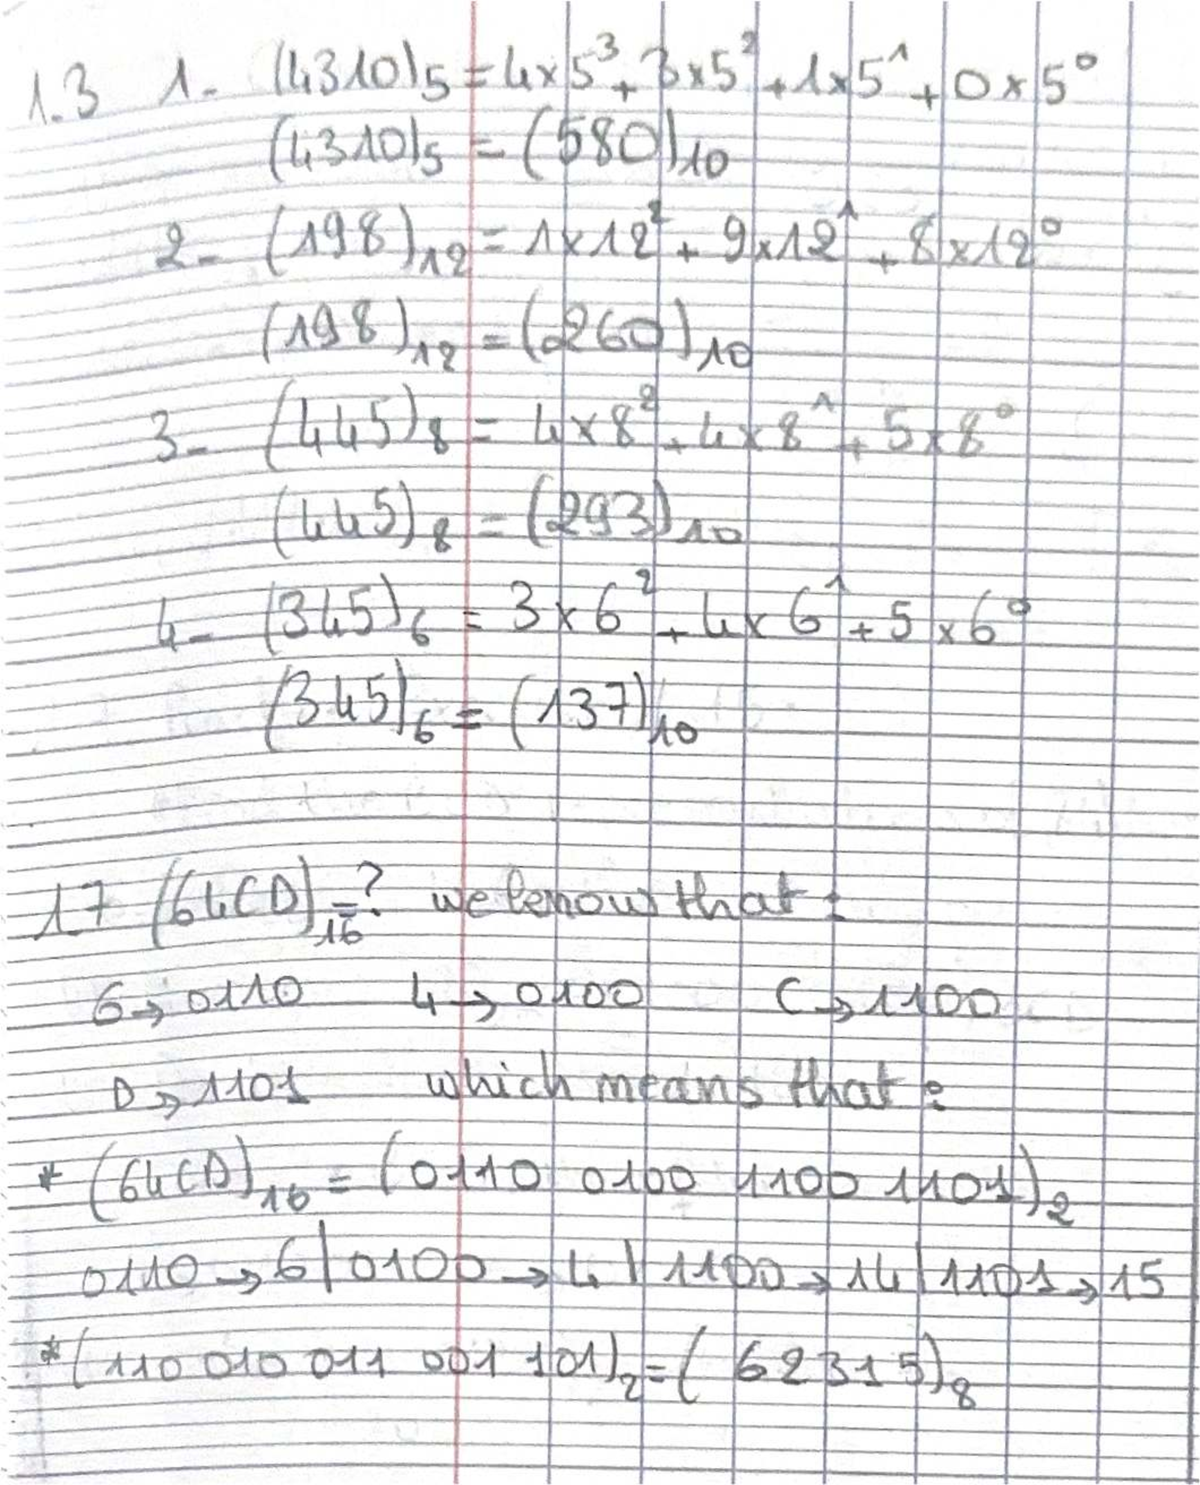 1.3 1- (4310)₅ = 4×5³ + 3×5² + 1×5¹ + 0×5⁰
(4310)₅ = (580)₁₀
2- (198)₁₂ = 1×12² + 9×12¹ + 8×12⁰
(198)₁₂ = (260)₁₀
3- (445)₈ = 4×8² + 4×8¹ + 5×8⁰
(445)₈ = (293)₁₀
4- (345)₆ = 3×6² + 4×6¹ + 5×6⁰
(345)₆ = (137)₁₀
17 (64CD)₁₆ = ? we know that :
6→0110 4→0100 C→1100
D→1101 which means that :
* (64CD)₁₆ = (0110 0100 1100 1101)₂
0110→6 | 0100→4 | 1100→14 | 1101→15
* (110 010 011 001 101)₂ = (62315)₈